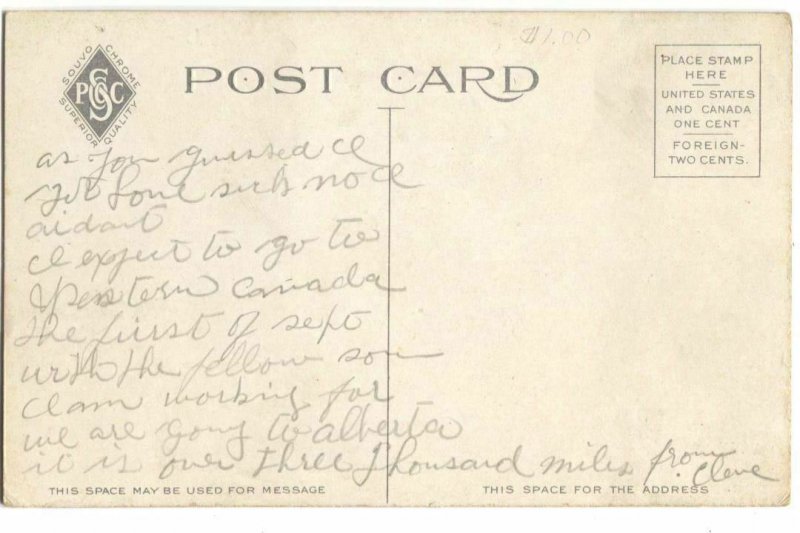 $1.00
SOUVO CHROME
PCCS
SUPERIOR QUALITY
POST CARD
PLACE STAMP
HERE
UNITED STATES
AND CANADA
ONE CENT
FOREIGN-
TWO CENTS.
as you guessed I
got home sick no I
aidant
I expect to go to
Western Canada
the first of sept
with the fellow son
I am working for
we are going to alberta
it is over three Thousand miles from
Cleve
THIS SPACE MAY BE USED FOR MESSAGE
THIS SPACE FOR THE ADDRESS